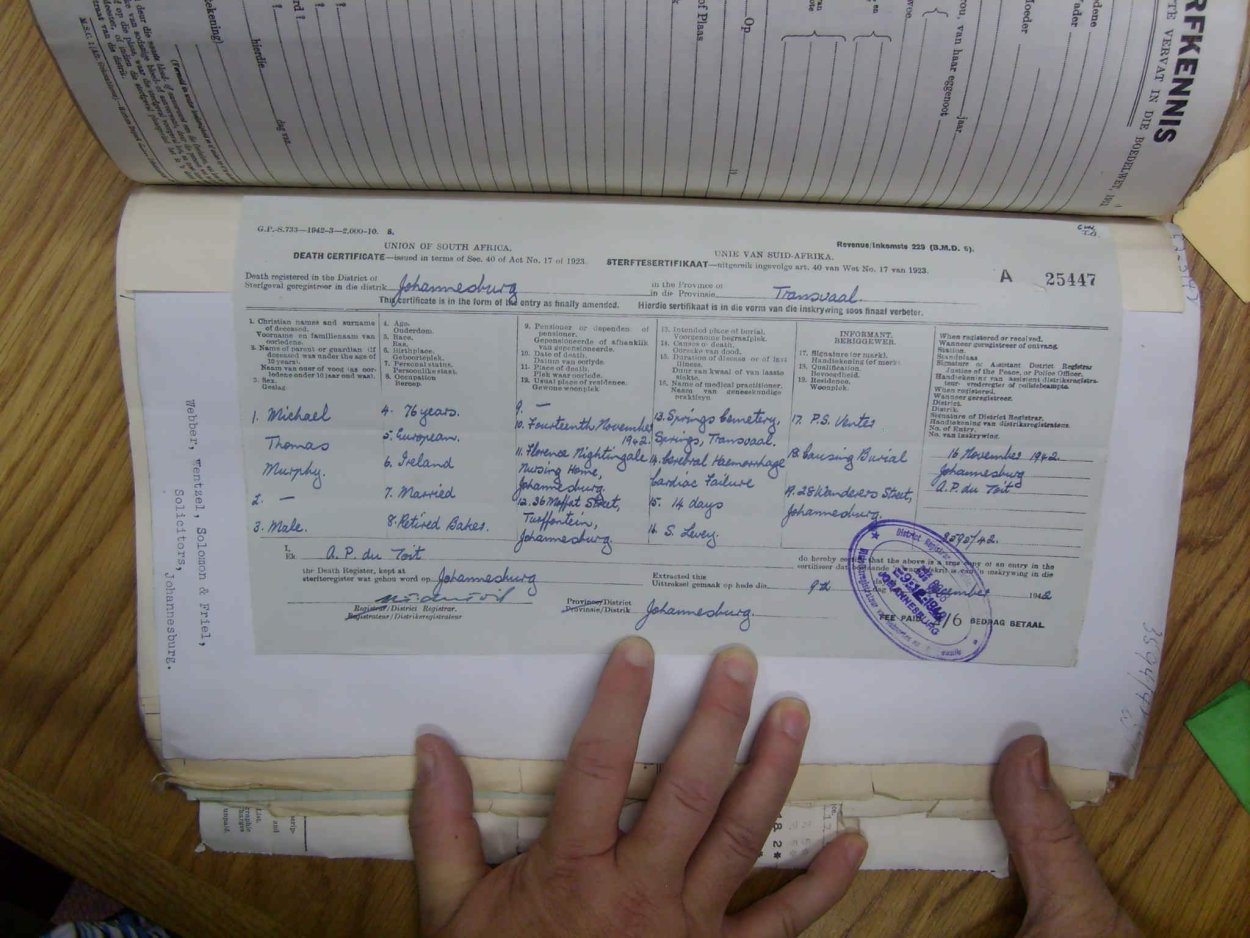 RFKENNIS
TE VERVAT IN DIE BOEDELWET, 1913.
Moeder
Vader
van haar eggenoot
jaar
of Plaas
Op
hierdie
dag van
G.P.-S.733—1942-3—2,000-10. S.
Revenue/Inkomste 229 (B.M.D. 5).
UNION OF SOUTH AFRICA.
UNIE VAN SUID-AFRIKA.
DEATH CERTIFICATE—issued in terms of Sec. 40 of Act No. 17 of 1923.
STERFTESERTIFIKAAT—uitgereik ingevolge art. 40 van Wet No. 17 van 1923.
A 25447
Death registered in the District of
Sterfgeval geregistreer in die distrik
Johannesburg
in the Province of
in die Provinsie
Transvaal
This certificate is in the form of the entry as finally amended.
Hierdie sertifikaat is in die vorm van die inskrywing soos finaal verbeter.
1. Christian names and surname of deceased.
Voorname en familienaam van oorledene.
2. Name of parent or guardian (if deceased was under the age of 10 years).
Naam van ouer of voog (as oorledene onder 10 jaar oud was).
3. Sex.
Geslag.
4. Age.
Ouderdom.
5. Race.
Ras.
6. Birthplace.
Geboorteplek.
7. Personal status.
Persoonlike staat.
8. Occupation
Beroep
9. Pensioner or dependen of pensioner.
Gepensioneerde of afhanklik van gepensioneerde.
10. Date of death.
Datum van oorlyde.
11. Place of death.
Plek waar oorlede.
12. Usual place of residence.
Gewone woonplek.
13. Intended place of burial.
Voorgenome begrafplek.
14. Causes of death.
Oorsake van dood.
15. Duration of disease or of last illness.
Duur van kwaal of van laaste siekte.
16. Name of medical practitioner.
Naam van geneeskundige praktisyn.
INFORMANT.
BERIGGEWER.
17. Signature (or mark).
Handtekening (of merk).
18. Qualification.
Bevoegdheid.
19. Residence.
Woonplek.
When registered or received.
Wanneer geregistreer of ontvang.
Station.
Standplaas
Signature of Assistant District Registrar
Justice of the Peace, or Police Officer.
Handtekening van assistent-distriksregistrateur vrederegter of polisiebeampte.
When registered.
Wanneer geregistreer.
District.
Distrik.
Signature of District Registrar.
Handtekening van distriksregistrateur.
No. of Entry.
No. van inskrywing.
1. Michael
Thomas
Murphy.
2. —
3. Male.
4. 76 years.
5. European.
6. Ireland
7. Married
8. Retired Baker.
9. —
10. Fourteenth November
1942.
11. Florence Nightingale
Nursing Home,
Johannesburg.
12. 36 Moffat Street,
Turffontein,
Johannesburg
13. Springs Cemetery,
Springs, Transvaal.
14. Cerebral Haemorrhage
Cardiac Failure
15. 14 days
16. S. Levey.
17. P.S. Venter
18. Causing Burial
19. 28 Wanderers Street,
Johannesburg.
16 November 1942
Johannesburg
A. P. du Toit
I,
Ek
A. P. du Toit
do hereby certify that the above is a true copy of an entry in the
the Death Register, kept at
sterfteregister wat gehou word op
Johannesburg
Extracted this
Uittreksel gemaak op hede die
1942
Registrar/District Registrar.
Registrateur/Distriksregistrateur
Province/District
Provinsie/Distrik
Johannesburg.
JOHANNESBURG
FEE PAID /6 BEDRAG BETAAL
Webber, Wentzel, Solomon & Friel,
Solicitors,
Johannesburg.